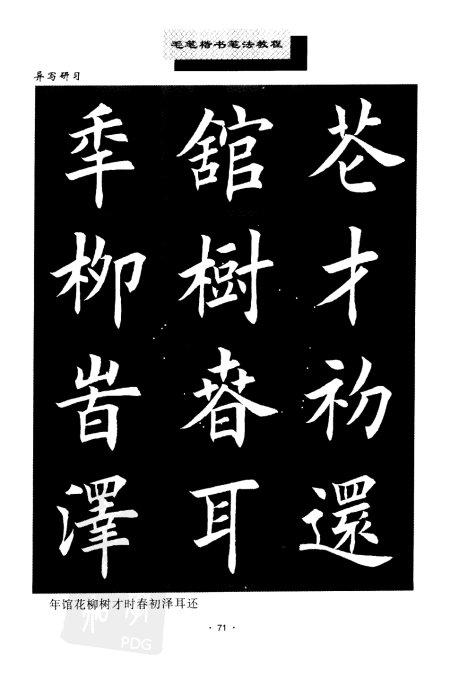 毛笔楷书笔法教程
异写研习
秊 舘 芲
柳 樹 才
旹 春 初
澤 耳 還
年馆花柳树才时春初泽耳还
PDG
· 71 ·